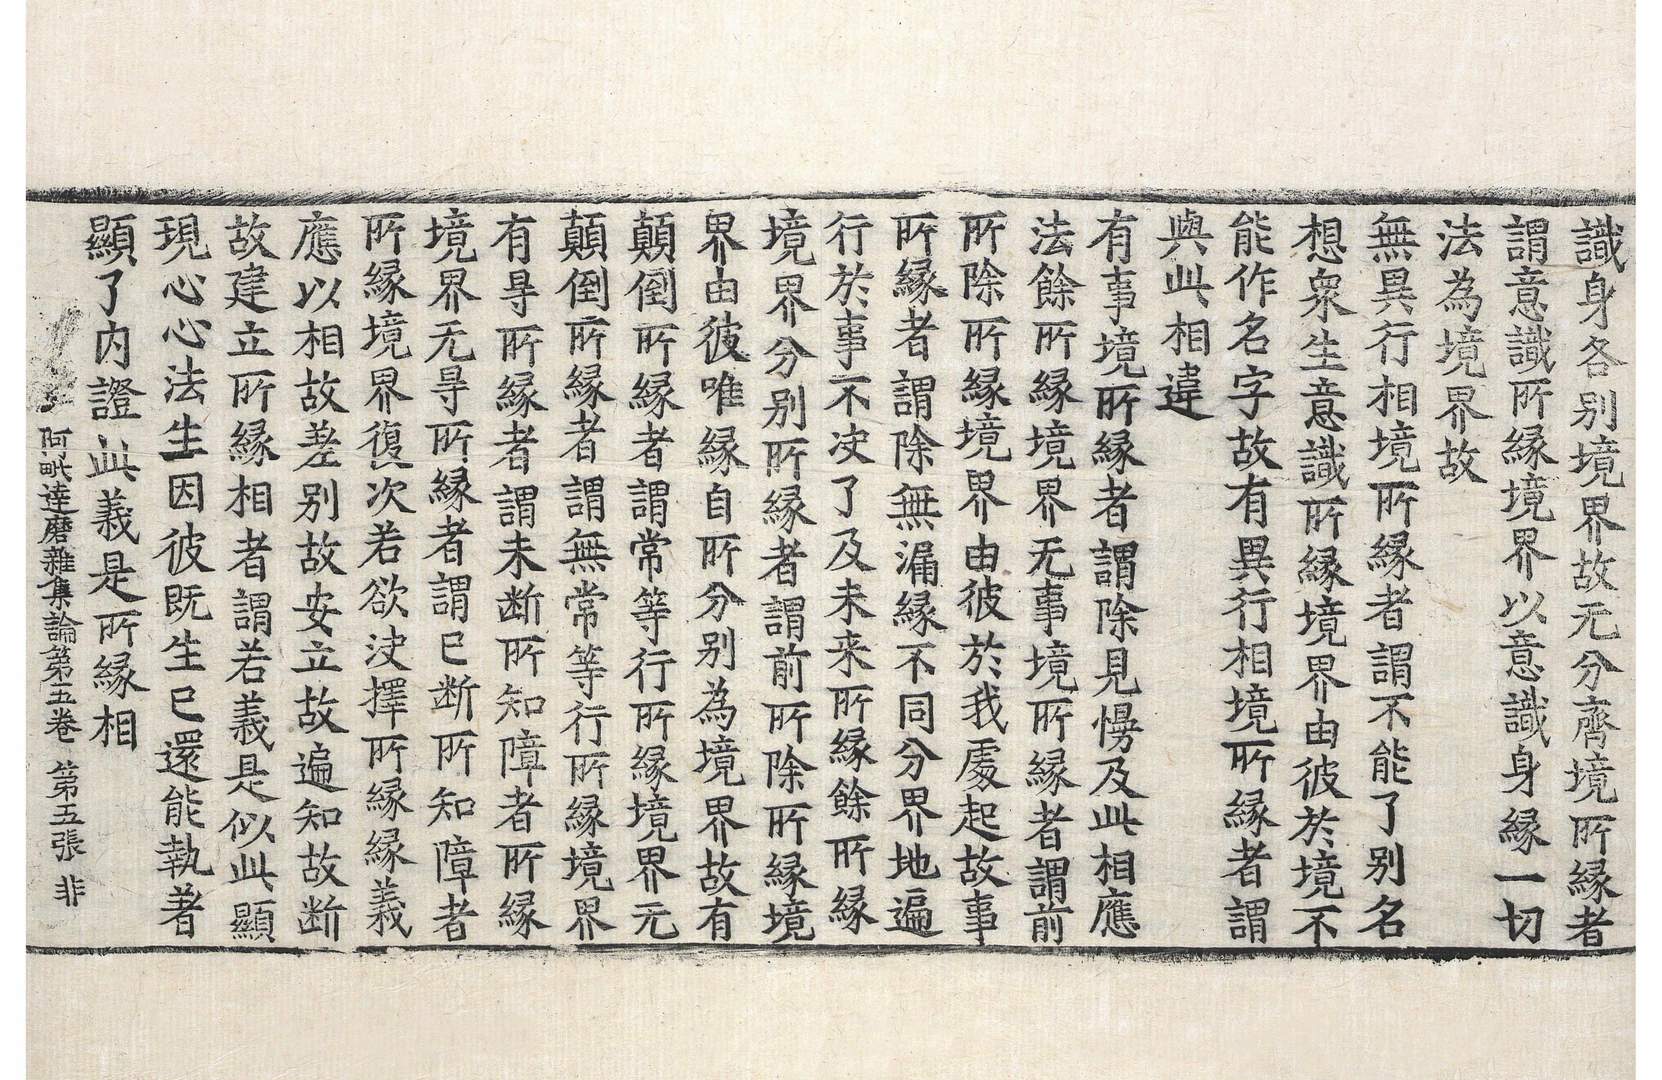 識身各别境界故无分齊境所縁者
謂意識所縁境界以意識身縁一切
法為境界故
無異行相境所縁者謂不能了别名
想衆生意識所縁境界由彼於境不
能作名字故有異行相境所縁者謂
與此相違
有事境所縁者謂除見慢及此相應
法餘所縁境界无事境所縁者謂前
所除所縁境界由彼於我處起故事
所縁者謂除無漏縁不同分界地遍
行於事不决了及未来所縁餘所縁
境界分别所縁者謂前所除所縁境
界由彼唯縁自所分别為境界故有
顛倒所縁者謂常等行所縁境界无
顛倒所縁者謂無常等行所縁境界
有㝵所縁者謂未断所知障者所縁
境界无㝵所縁者謂已断所知障者
所縁境界復次若欲决擇所縁縁義
應以相故差别故安立故遍知故断
故建立所縁相者謂若義是似此顯
現心心法生因彼既生已還能執著
顯了内證此義是所縁相
阿毗達磨雜集論第五卷 第五張 非